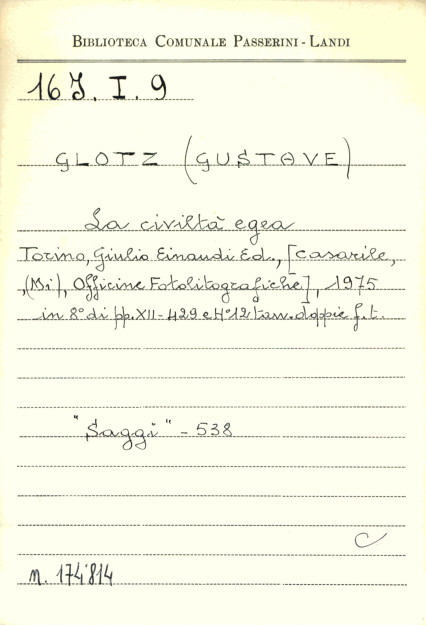 BIBLIOTECA COMUNALE PASSERINI - LANDI
16 J. I. 9
GLOTZ (GUSTAVE)
La civiltà egea
Torino, Giulio Einaudi Ed., [Casarile,
(Mi), Officine Fotolitografiche], 1975
in 8° di pp. XII - 429 e N° 12 tav. doppie f. t.
"Saggi" - 538
C
n. 174'814